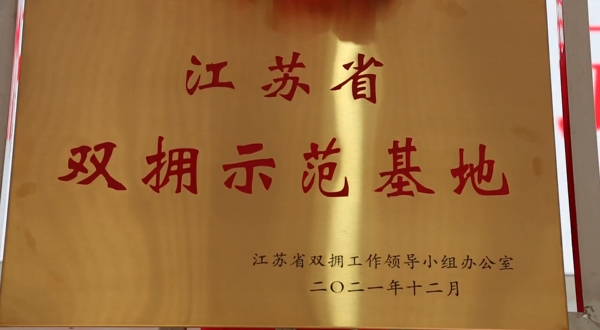 江苏省
双拥示范基地
江苏省双拥工作领导小组办公室
二〇二一年十二月